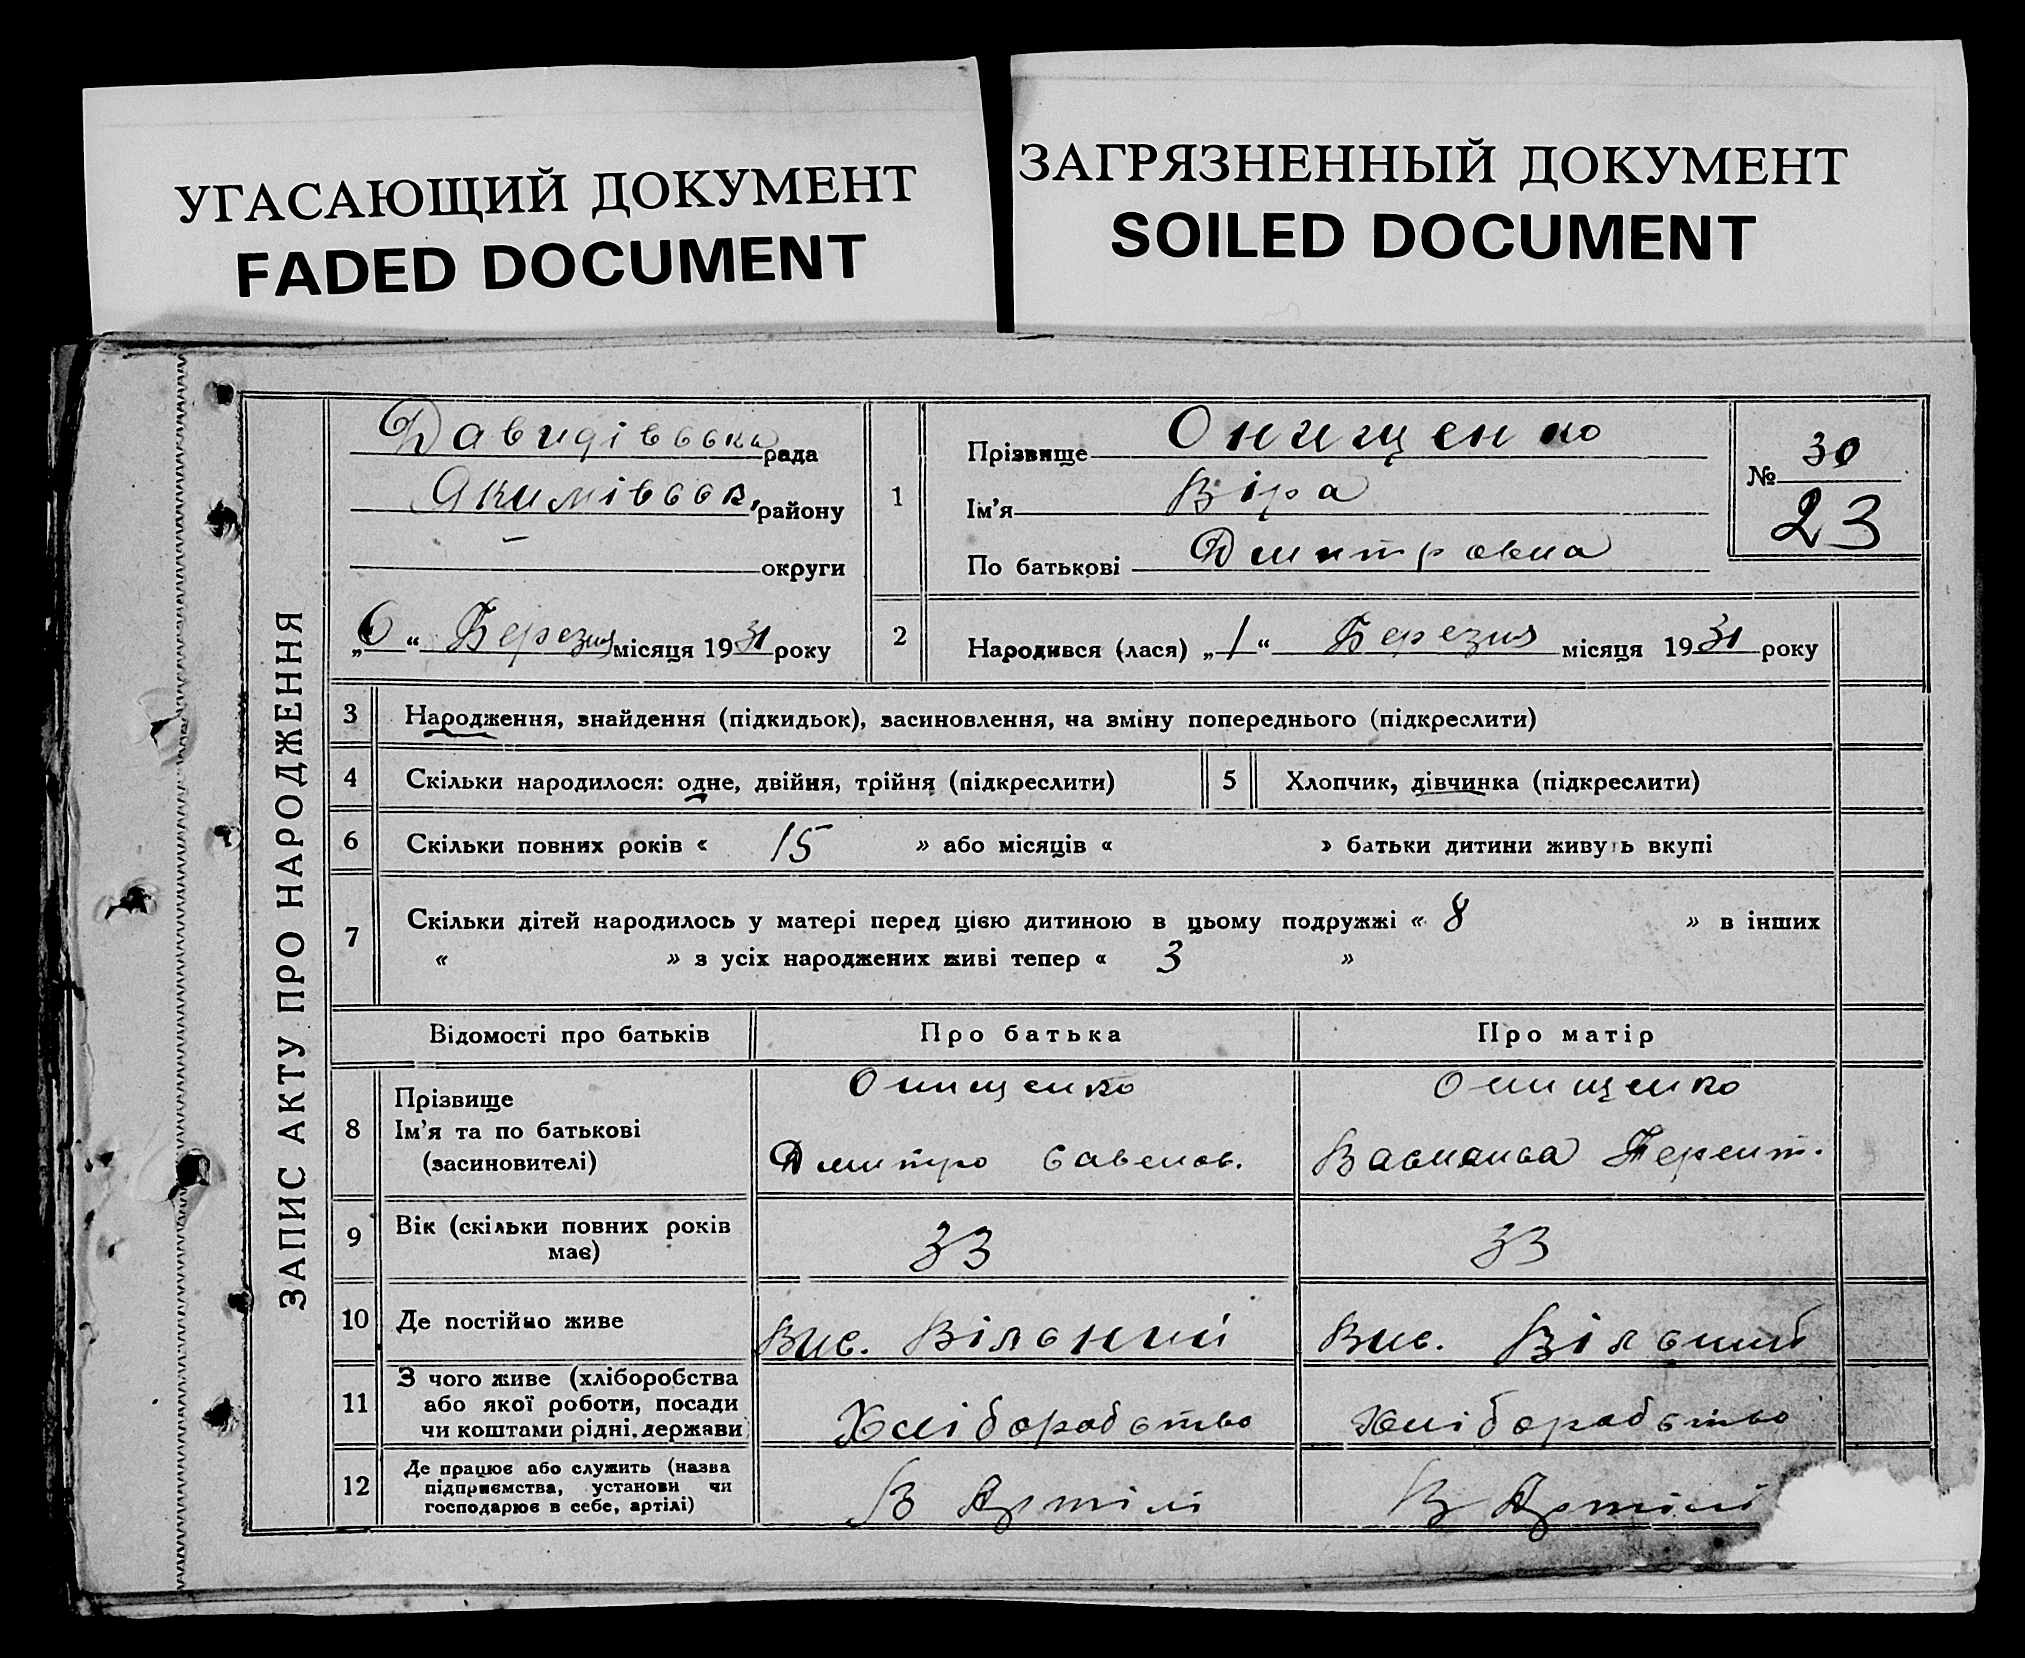 УГАСАЮЩИЙ ДОКУМЕНТ
FADED DOCUMENT
ЗАГРЯЗНЕННЫЙ ДОКУМЕНТ
SOILED DOCUMENT
ЗАПИС АКТУ ПРО НАРОДЖЕННЯ
Давидівська рада
Якимівськ. району
— округи
„6“ Березня місяця 1931 року
1
Прізвище Онищенко
Ім'я Віра
По батькові Дмитровна
№ 30
23
2 Народився (лася) „1“ Березня місяця 1931 року
3 Народження, знайдення (підкидьок), засиновлення, на зміну попереднього (підкреслити)
4 Скільки народилося: одне, двійня, трійня (підкреслити)
5 Хлопчик, дівчинка (підкреслити)
6 Скільки повних років « 15 » або місяців « » батьки дитини живуть вкупі
7 Скільки дітей народилось у матері перед цією дитиною в цьому подружжі « 8 » в інших
« » з усіх народжених живі тепер « 3 »
Відомості про батьків
Про батька
Про матір
8 Прізвище
Ім'я та по батькові
(засиновителі)
Онищенко
Дмитро Савелов.
Онищенко
9 Вік (скільки повних років
має)
33
33
10 Де постійно живе
Вис. Вільний
Вис. Вільний
11 З чого живе (хліборобства
або якої роботи, посади
чи коштами рідні, держави
Хліборобство
Хліборобство
12 Де працює або служить (назва
підприємства, установи чи
господарює в себе, артілі)
В Артілі
В Артілі